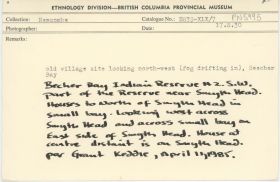 ETHNOLOGY DIVISION—BRITISH COLUMBIA PROVINCIAL MUSEUM
Collection: Newcombe Catalogue No.: PN5895
Photographer: Date:
Remarks:
old village site looking north-west (fog drifting in), Beecher
Bay
Becher Bay Indian Reserve #2. S.W.
part of the Reserve near Smyth Head.
Houses to North of Smyth Head in
small bay. Looking west across
Smyth Head and across small bay on
East side of Smyth Head. House at
centre distant is on Smyth Head.
per Grant Keddie, April 14, 1985.